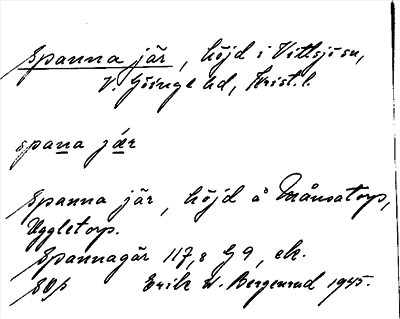 Spanna jär, höjd i Vittsjö sn,
V. Göinge hd, Krist. l.
spana jär
Spanna jär, höjd å Månsatorp,
Uggletorp.
Spannagär 117,8 G 9, ek.
Erik W. Bergenrud 1945.